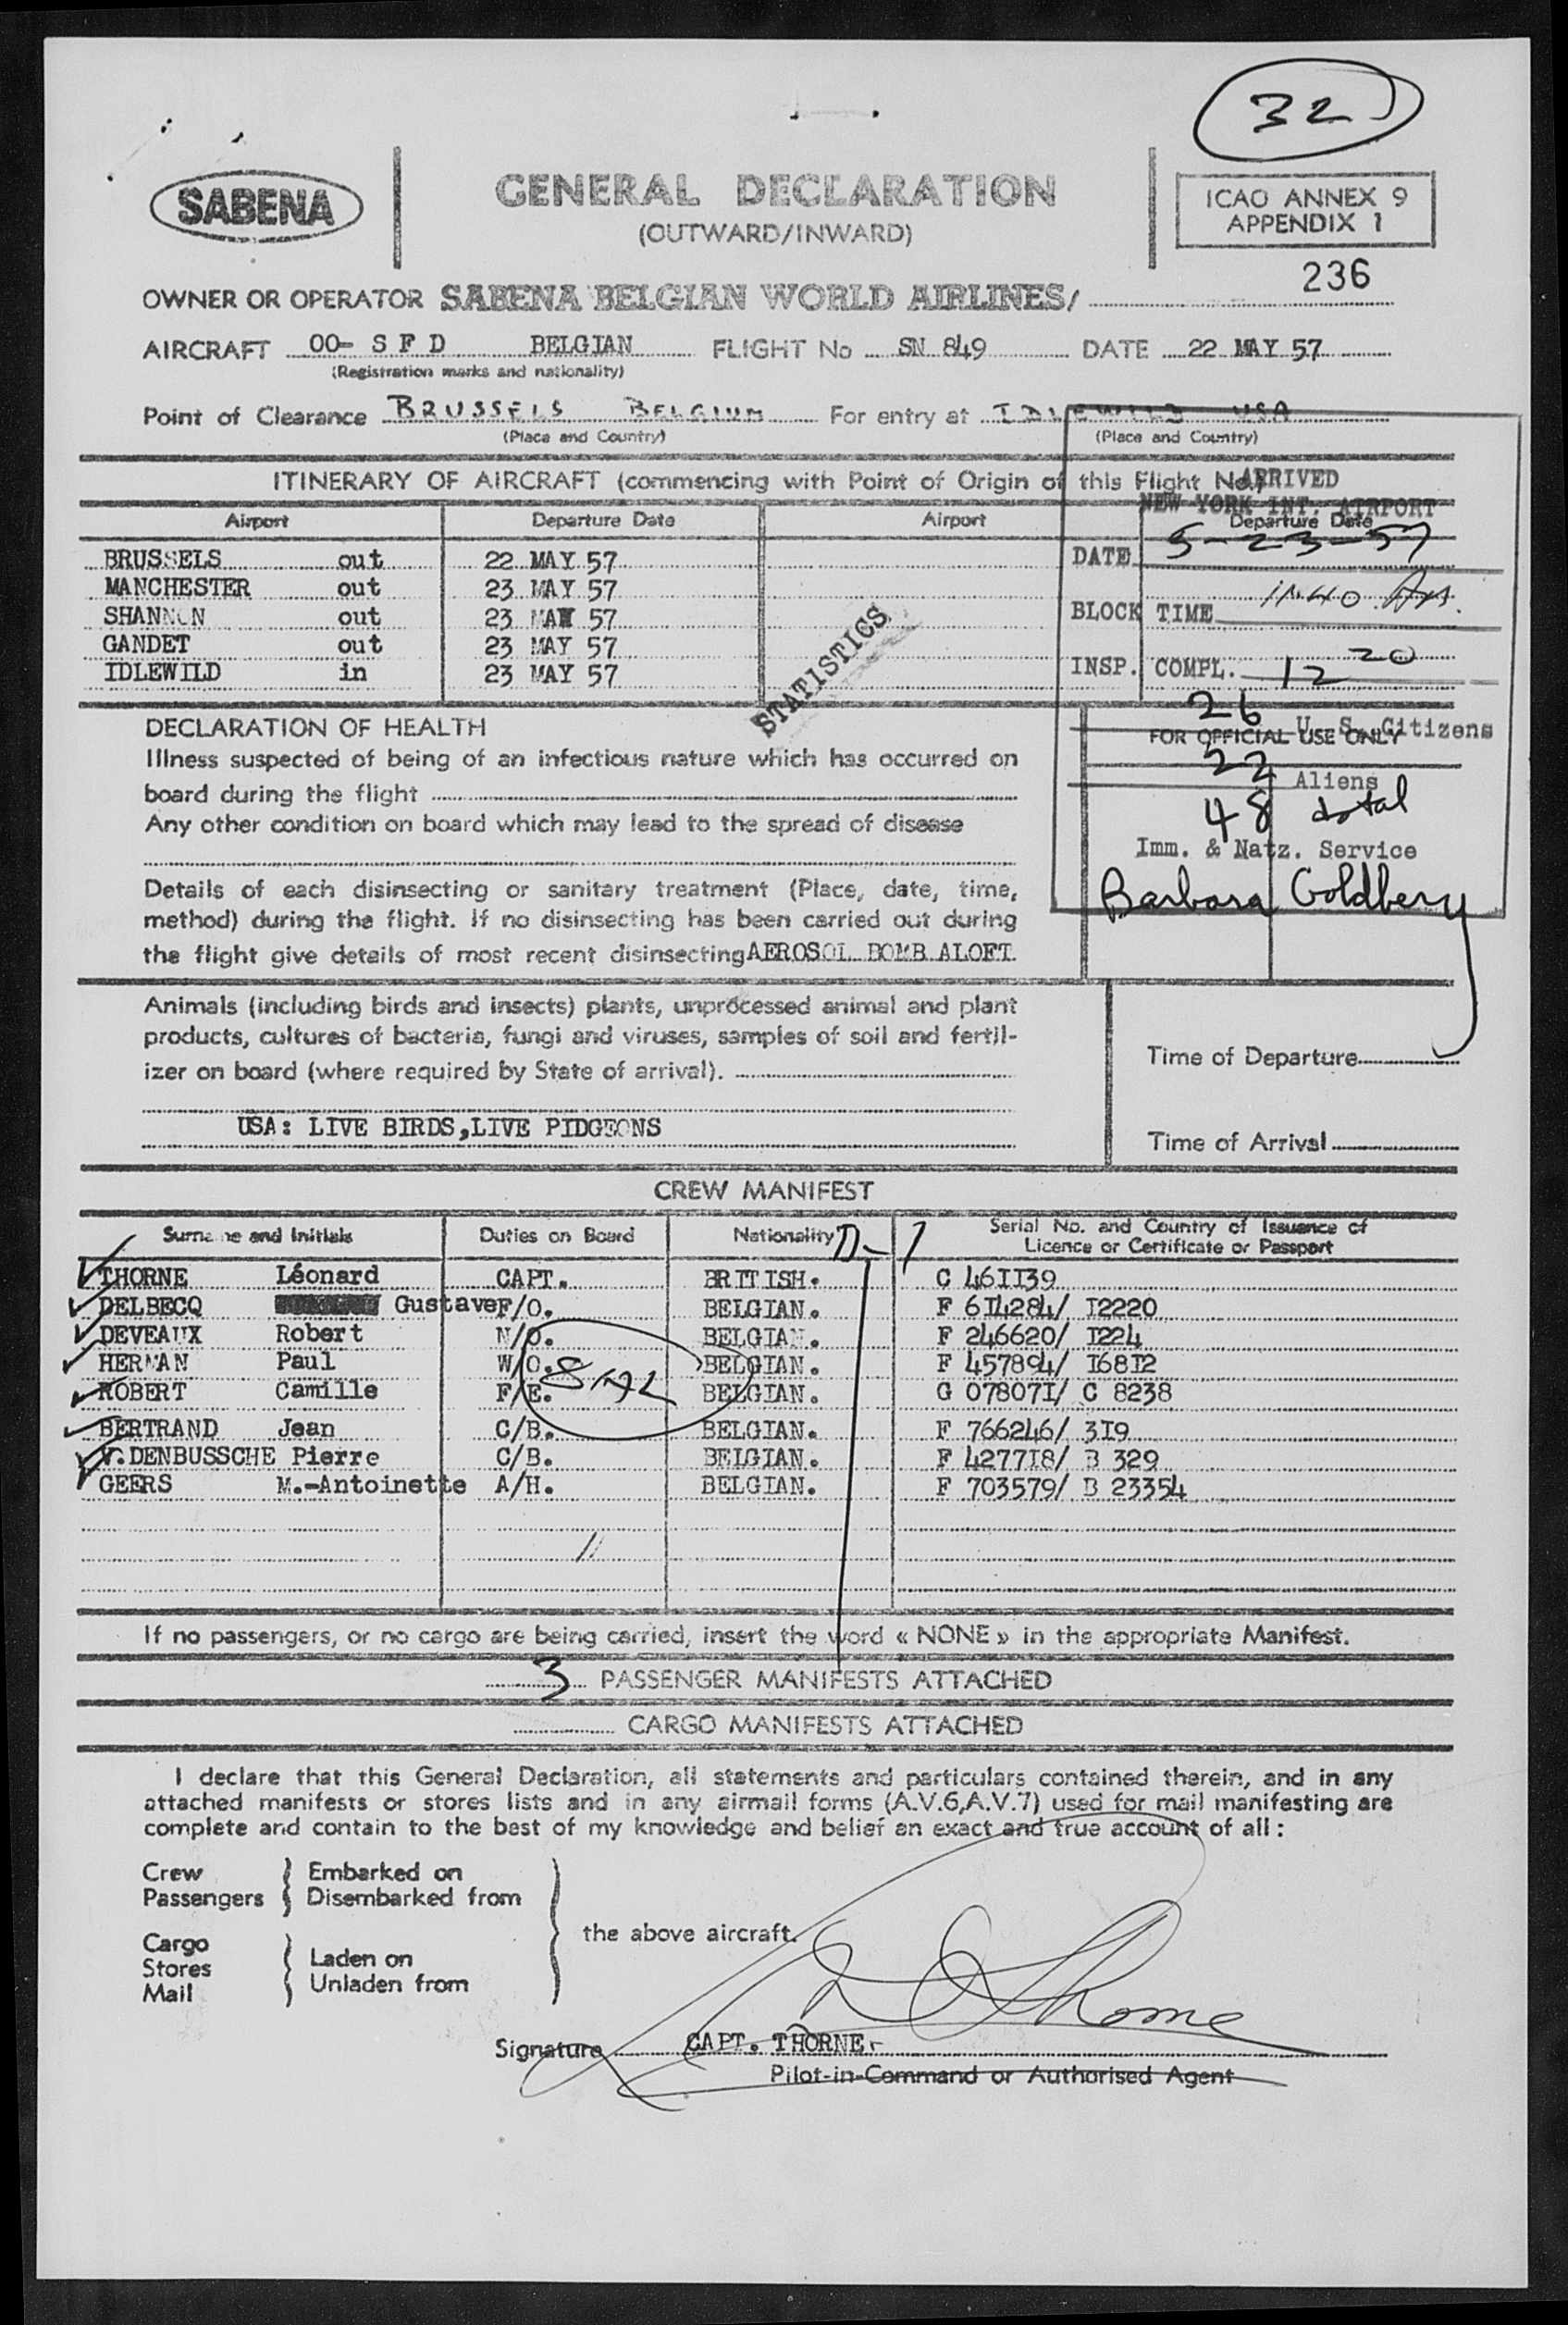 32
SABENA
GENERAL DECLARATION
(OUTWARD/INWARD)
ICAO ANNEX 9
APPENDIX 1
236
OWNER OR OPERATOR SABENA BELGIAN WORLD AIRLINES/
AIRCRAFT OO- S F D BELGIAN FLIGHT No SN 849 DATE 22 MAY 57
(Registration marks and nationality)
Point of Clearance BRUSSELS BELGIUM For entry at IDLEWILD USA
(Place and Country) (Place and Country)
ITINERARY OF AIRCRAFT (commencing with Point of Origin of this Flight No)
ARRIVED
NEW YORK INT. AIRPORT
Airport Departure Date Airport Departure Date
DATE 5-23-57
BRUSSELS out 22 MAY 57
MANCHESTER out 23 MAY 57
SHANNON out 23 MAY 57
BLOCK TIME 1140 Am.
GANDET out 23 MAY 57
IDLEWILD in 23 MAY 57
INSP. COMPL. 12 20
STATISTICS
26 U. S. Citizens
FOR OFFICIAL USE ONLY
22 Aliens
48 total
Imm. & Natz. Service
Barbara Goldberg
DECLARATION OF HEALTH
Illness suspected of being of an infectious nature which has occurred on
board during the flight
Any other condition on board which may lead to the spread of disease
Details of each disinsecting or sanitary treatment (Place, date, time,
method) during the flight. If no disinsecting has been carried out during
the flight give details of most recent disinsecting AEROSOL BOMB ALOFT
Animals (including birds and insects) plants, unprocessed animal and plant
products, cultures of bacteria, fungi and viruses, samples of soil and fertil-
izer on board (where required by State of arrival).
USA: LIVE BIRDS,LIVE PIDGEONS
Time of Departure
Time of Arrival
CREW MANIFEST
Surname and Initials Duties on Board Nationality Serial No. and Country of Issuance of
Licence or Certificate or Passport
D-1
THORNE Léonard CAPT. BRITISH. C 46II39
DELBECQ Gustave F/O. BELGIAN. F 6I4284/ I2220
DEVEAUX Robert N/O. BELGIAN. F 246620/ I224
HERMAN Paul W/O. BELGIAN. F 457894/ I68I2
ROBERT Camille F/E. BELGIAN. G 07807I/ C 8238
BERTRAND Jean C/B. BELGIAN. F 766246/ 3I9
V.DENBUSSCHE Pierre C/B. BELGIAN. F 4277I8/ B 329
GEERS M.-Antoinette A/H. BELGIAN. F 703579/ B 23354
If no passengers, or no cargo are being carried, insert the word « NONE » in the appropriate Manifest.
3 PASSENGER MANIFESTS ATTACHED
CARGO MANIFESTS ATTACHED
I declare that this General Declaration, all statements and particulars contained therein, and in any
attached manifests or stores lists and in any airmail forms (A.V.6,A.V.7) used for mail manifesting are
complete and contain to the best of my knowledge and belief an exact and true account of all :
Crew
Passengers
Embarked on
Disembarked from
Cargo
Stores
Mail
Laden on
Unladen from
the above aircraft.
Thorne
Signature CAPT. THORNE
Pilot-in-Command or Authorised Agent